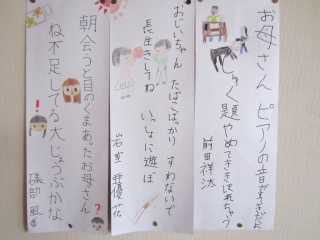 お母さん ピアノの音がすきだから
しゅく題やめてききほれちゃう
前田祥汰
おじいちゃん たばこばっかり すわないで
長生きしてね いっしょに遊ぼ
岩室 亜優花
朝会うと目のくまあったお母さん
ね不足してる大じょうぶかな
磯部 風香